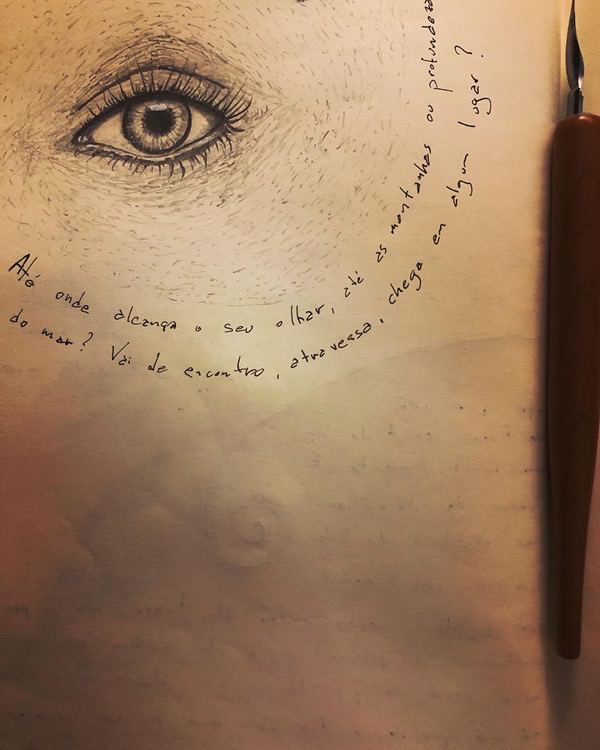 Até onde alcança o seu olhar, até as montanhas ou profundezas
do mar? Vai de encontro, atravessa, chega em algum lugar?